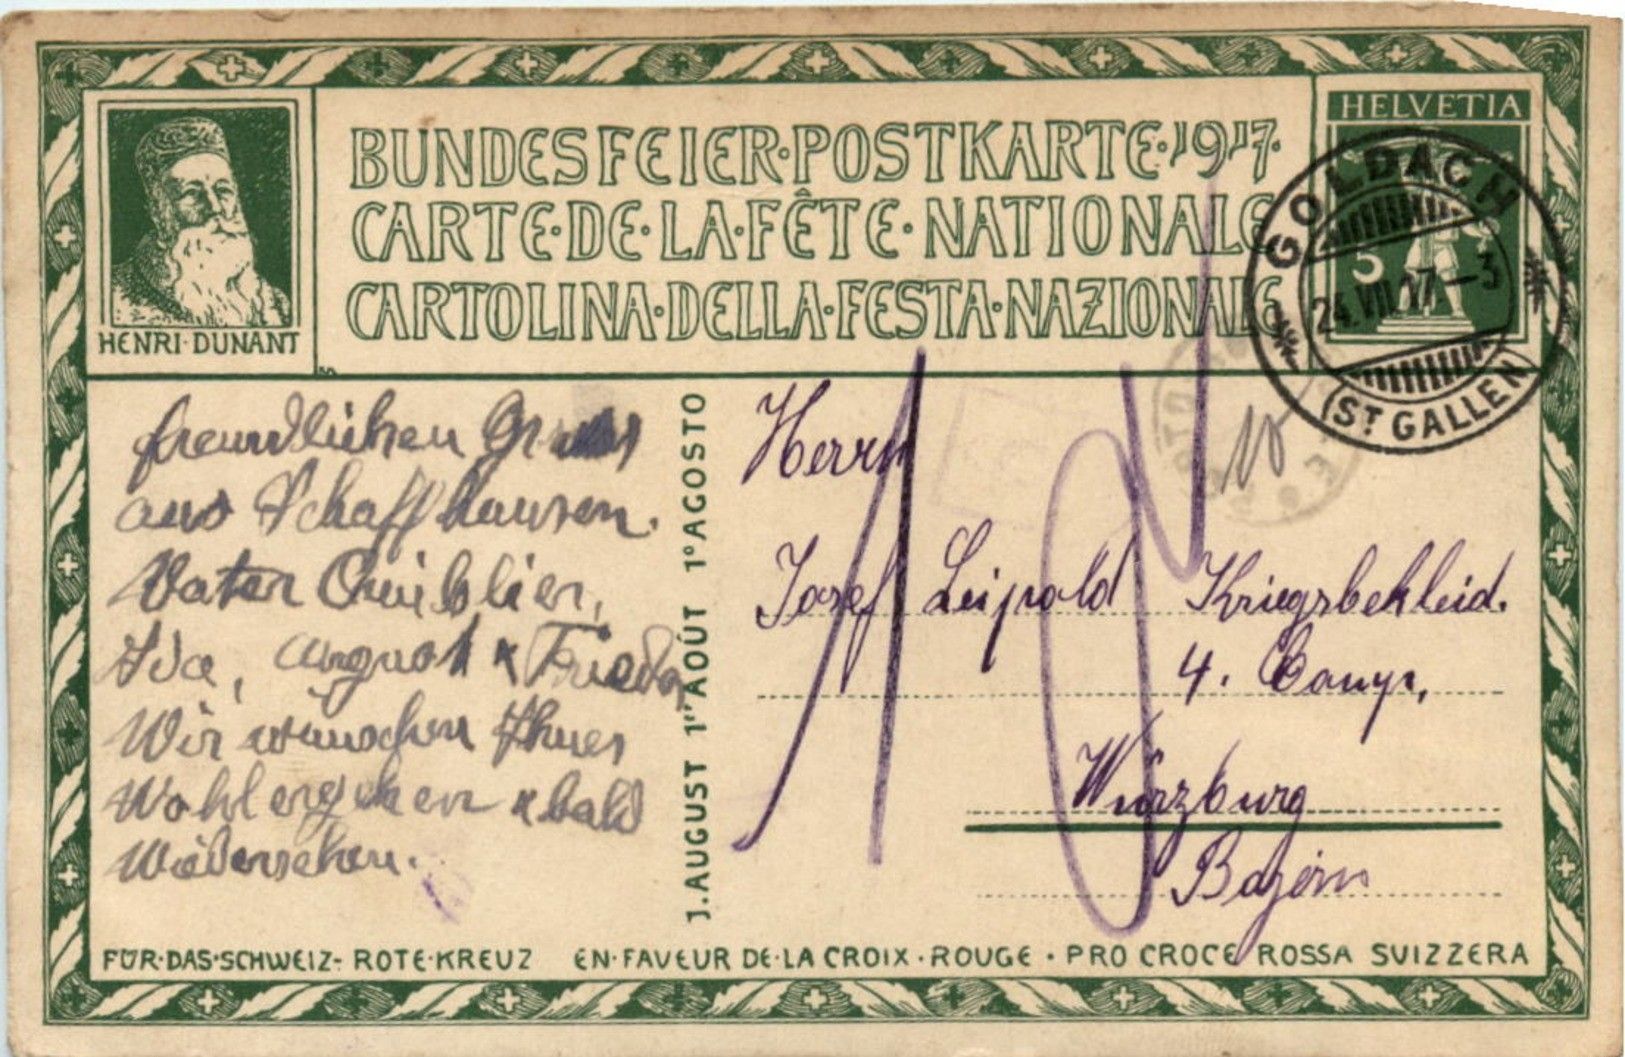 BUNDESFEIER·POSTKARTE·1917·
CARTE·DE·LA·FÊTE·NATIONALE
CARTOLINA·DELLA·FESTA·NAZIONALE
HENRI·DUNANT
HELVETIA
5
GOLDACH
24.VII.17–3
(ST GALLEN)
freundlichen Gruss
aus Schaffhausen.
Vater
Ida, August & Frieda
Wir wünschen Ihnen
Wohlergehen & bald
Widersehen.
1. AUGUST 1ER AOÚT 1º AGOSTO
10
Herrn
Josef Leipold Kriegsbekleid.
4. Comp.
Würzburg
Bayern
FÜR·DAS·SCHWEIZ- ROTE·KREUZ EN·FAVEUR DE·LA CROIX·ROUGE · PRO CROCE ROSSA SVIZZERA